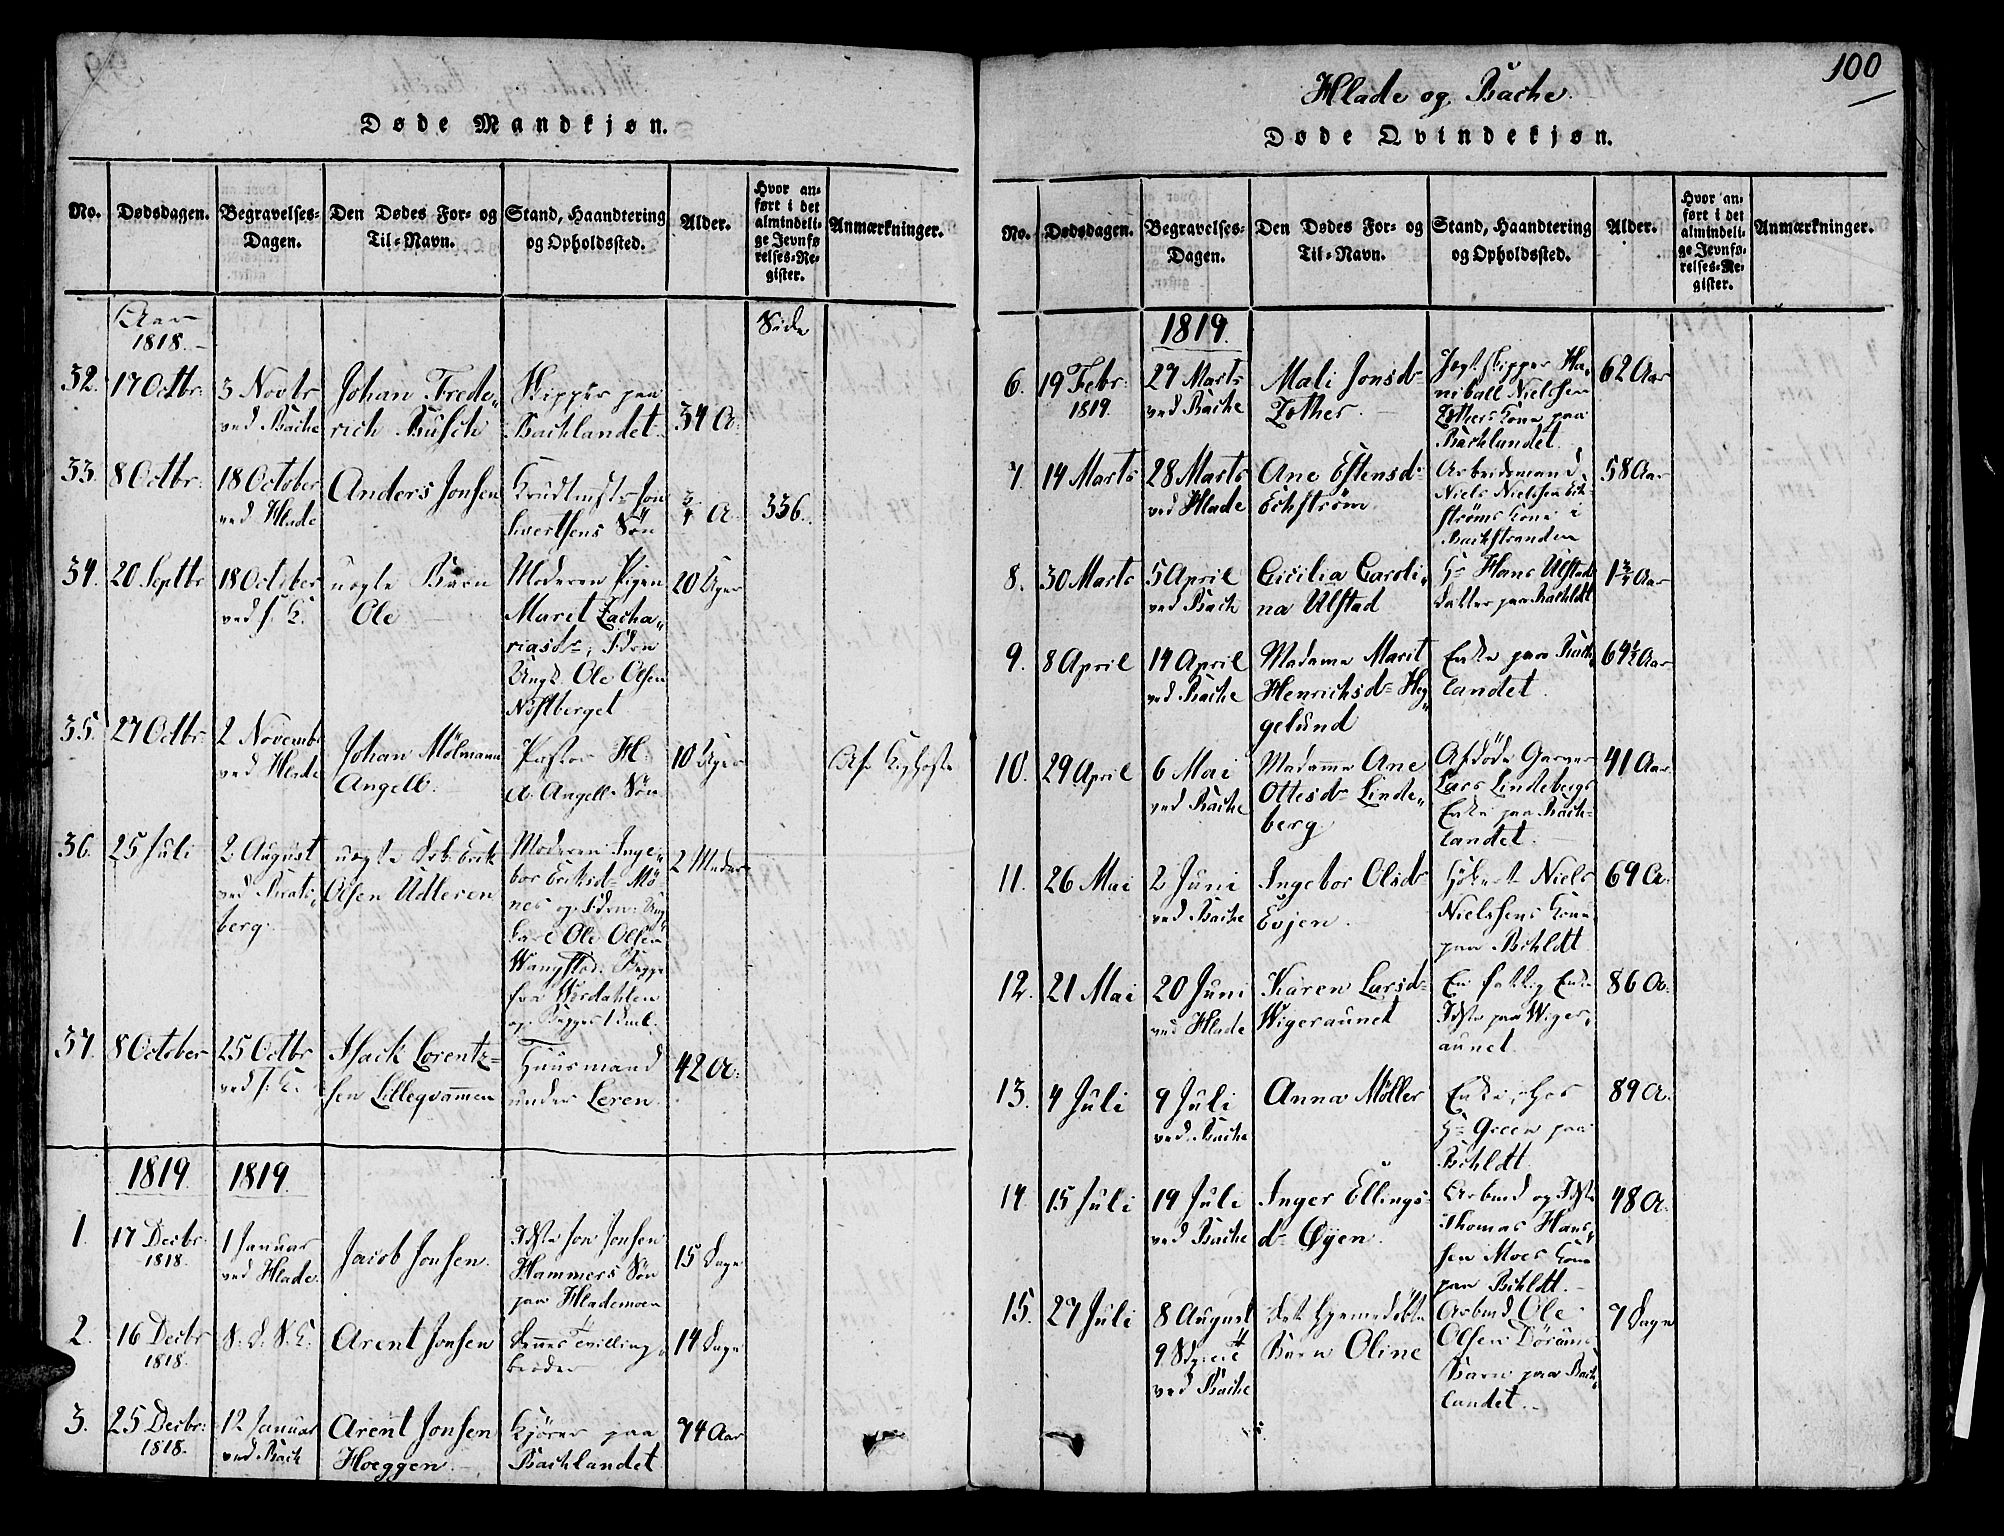 Døde Mandkjøn.
No.
Dødsdagen.
Begravelses-
Dagen.
Den Dødes For- og
Til-Navn.
Stand, Haandtering
og Opholdssted.
Alder.
Hvor an-
ført i det
almindeli-
ge Jevnfø
relses-Re-
gister.
Anmærkninger.
Aar
1818.
Side
32.
17 Octbr:
3 Novbr
ved Bache
Johan Frede„
rich Busch
Skipper paa
Bachlandet.
34 A:
33.
8 Octbr:
18 October
ved Hlade
Anders Jonsen
Jon
Sivertsens Søn
3/4 A.
336.
34.
20 Septbr
18 October
ved s. K.
uægte Barn
Ole
Moderen Pigen
Maret Zacha„
riasdr, Fdren
Ungk. Ole Olsen
Nostberget
20 Uger
35.
27 Octbr:
2 Novembr
ved Hlade
Johan Mölmann
Angell.
Pastor H:
A. Angells Søn
10 Uger
Af Kighoste
36.
25 Juli
2 August
ved Brats„
berg
uægte Drb: Erik
Olsen Udleren
Moderen Inge„
bor Eriksdr Mö„
nes og Fdren Ung„
karl Ole Olsen
Wangstad, Begge
fra Wærdahlen
og Begges 1 Leierm.
2 Mader
37.
8 October
25 Octbr
ved s: K.
Isack Lorentz-
sen Lillegvammen
Huusmand
under Leren.
42 A:
1819.
1819.
1.
17 Decbr:
1818.
1 Januar
ved Hlade.
Jacob Jonsen.
Idste Jon Jonsen
Hammers Søn
paa Hlademoen
15 Dage
2.
16 Decbr
1818.
S. D. S. K.
Arent Jonsen
Dennes Tvilling„
broder
14 Dage
3.
25 Decbr:
1818.
12 Januar
ved Bach
Arent Jonsen
Hoeggen.
Kjörer paa
Bachlandet
74 Aar
100
Hlade og Bache.
Døde Qvindekjøn.
No.
Dødsdagen.
Begravelses-
Dagen.
Den Dødes For- og
Til-Navn.
Stand, Haandtering
og Opholdssted.
Alder.
Hvor an-
ført i det
almindeli-
ge Jevnfø-
relses-Re-
gister.
Anmærkninger.
1819.
6.
19 Febr:
1819.
27 Marts
ved Bache
Mali Jonsdr
Lother.
Jegtskipper Ha„
niball Nielssen
Lothers Kone paa
Bachlandet.
62 Aar
7
14 Marts
28 Marts
ved Hlade
Ane Estensdr
Eckström
Arbeidsmand
Niels Nielssen Eck„
ströms Kone i
Bachstranden
58 Aar
8.
30 Marts
5 April
ved Bach
Cicilia Caroli„
na Ulstad
Hr Hans Ulstads
Datter paa Bachldt.
1 3/4 Aar
9.
8 April
14 April
ved Bache
Madame Marit
Henrichsdr Heg„
gelund
Enke paa Bach„
landet.
64 1/2 Aar
10.
29 April
6 Mai
ved Bache
Madame Ane
Ottesdr Linde„
berg
Afdöde Garver
Lars Lindebergs
Enke paa Bach„
landet.
41 Aar
11.
26 Mai
2 Juni
ved Bache
Ingebor Olsdr
Evjen.
Niels
Nielssens Kone
paa Bchldt.
69 A.
12.
21 Mai
20 Juni
ved Hlade
Karen Larsdr
Wigeraunet
En fattig Enke
Idste paa Wiger„
aunet.
86 A.
13.
4 Juli
9 Juli
ved Bache
Anna Möller
Enke, hos
Hr Green paa
Bchldt.
89 A.
14.
15 Juli
19 Juli
ved Bache
Inger Ellings-
dr Øyen.
Arbmd og Idste
Thomas Hans„
sen Moes Kone
paa Bchldt.
48 A.
15.
27 Juli
8 August
ved Bache
Det hjemmedöbte
Barn Oline
Arbmd Ole
Olsen
Barn paa Bach„
landet.
7 Dage